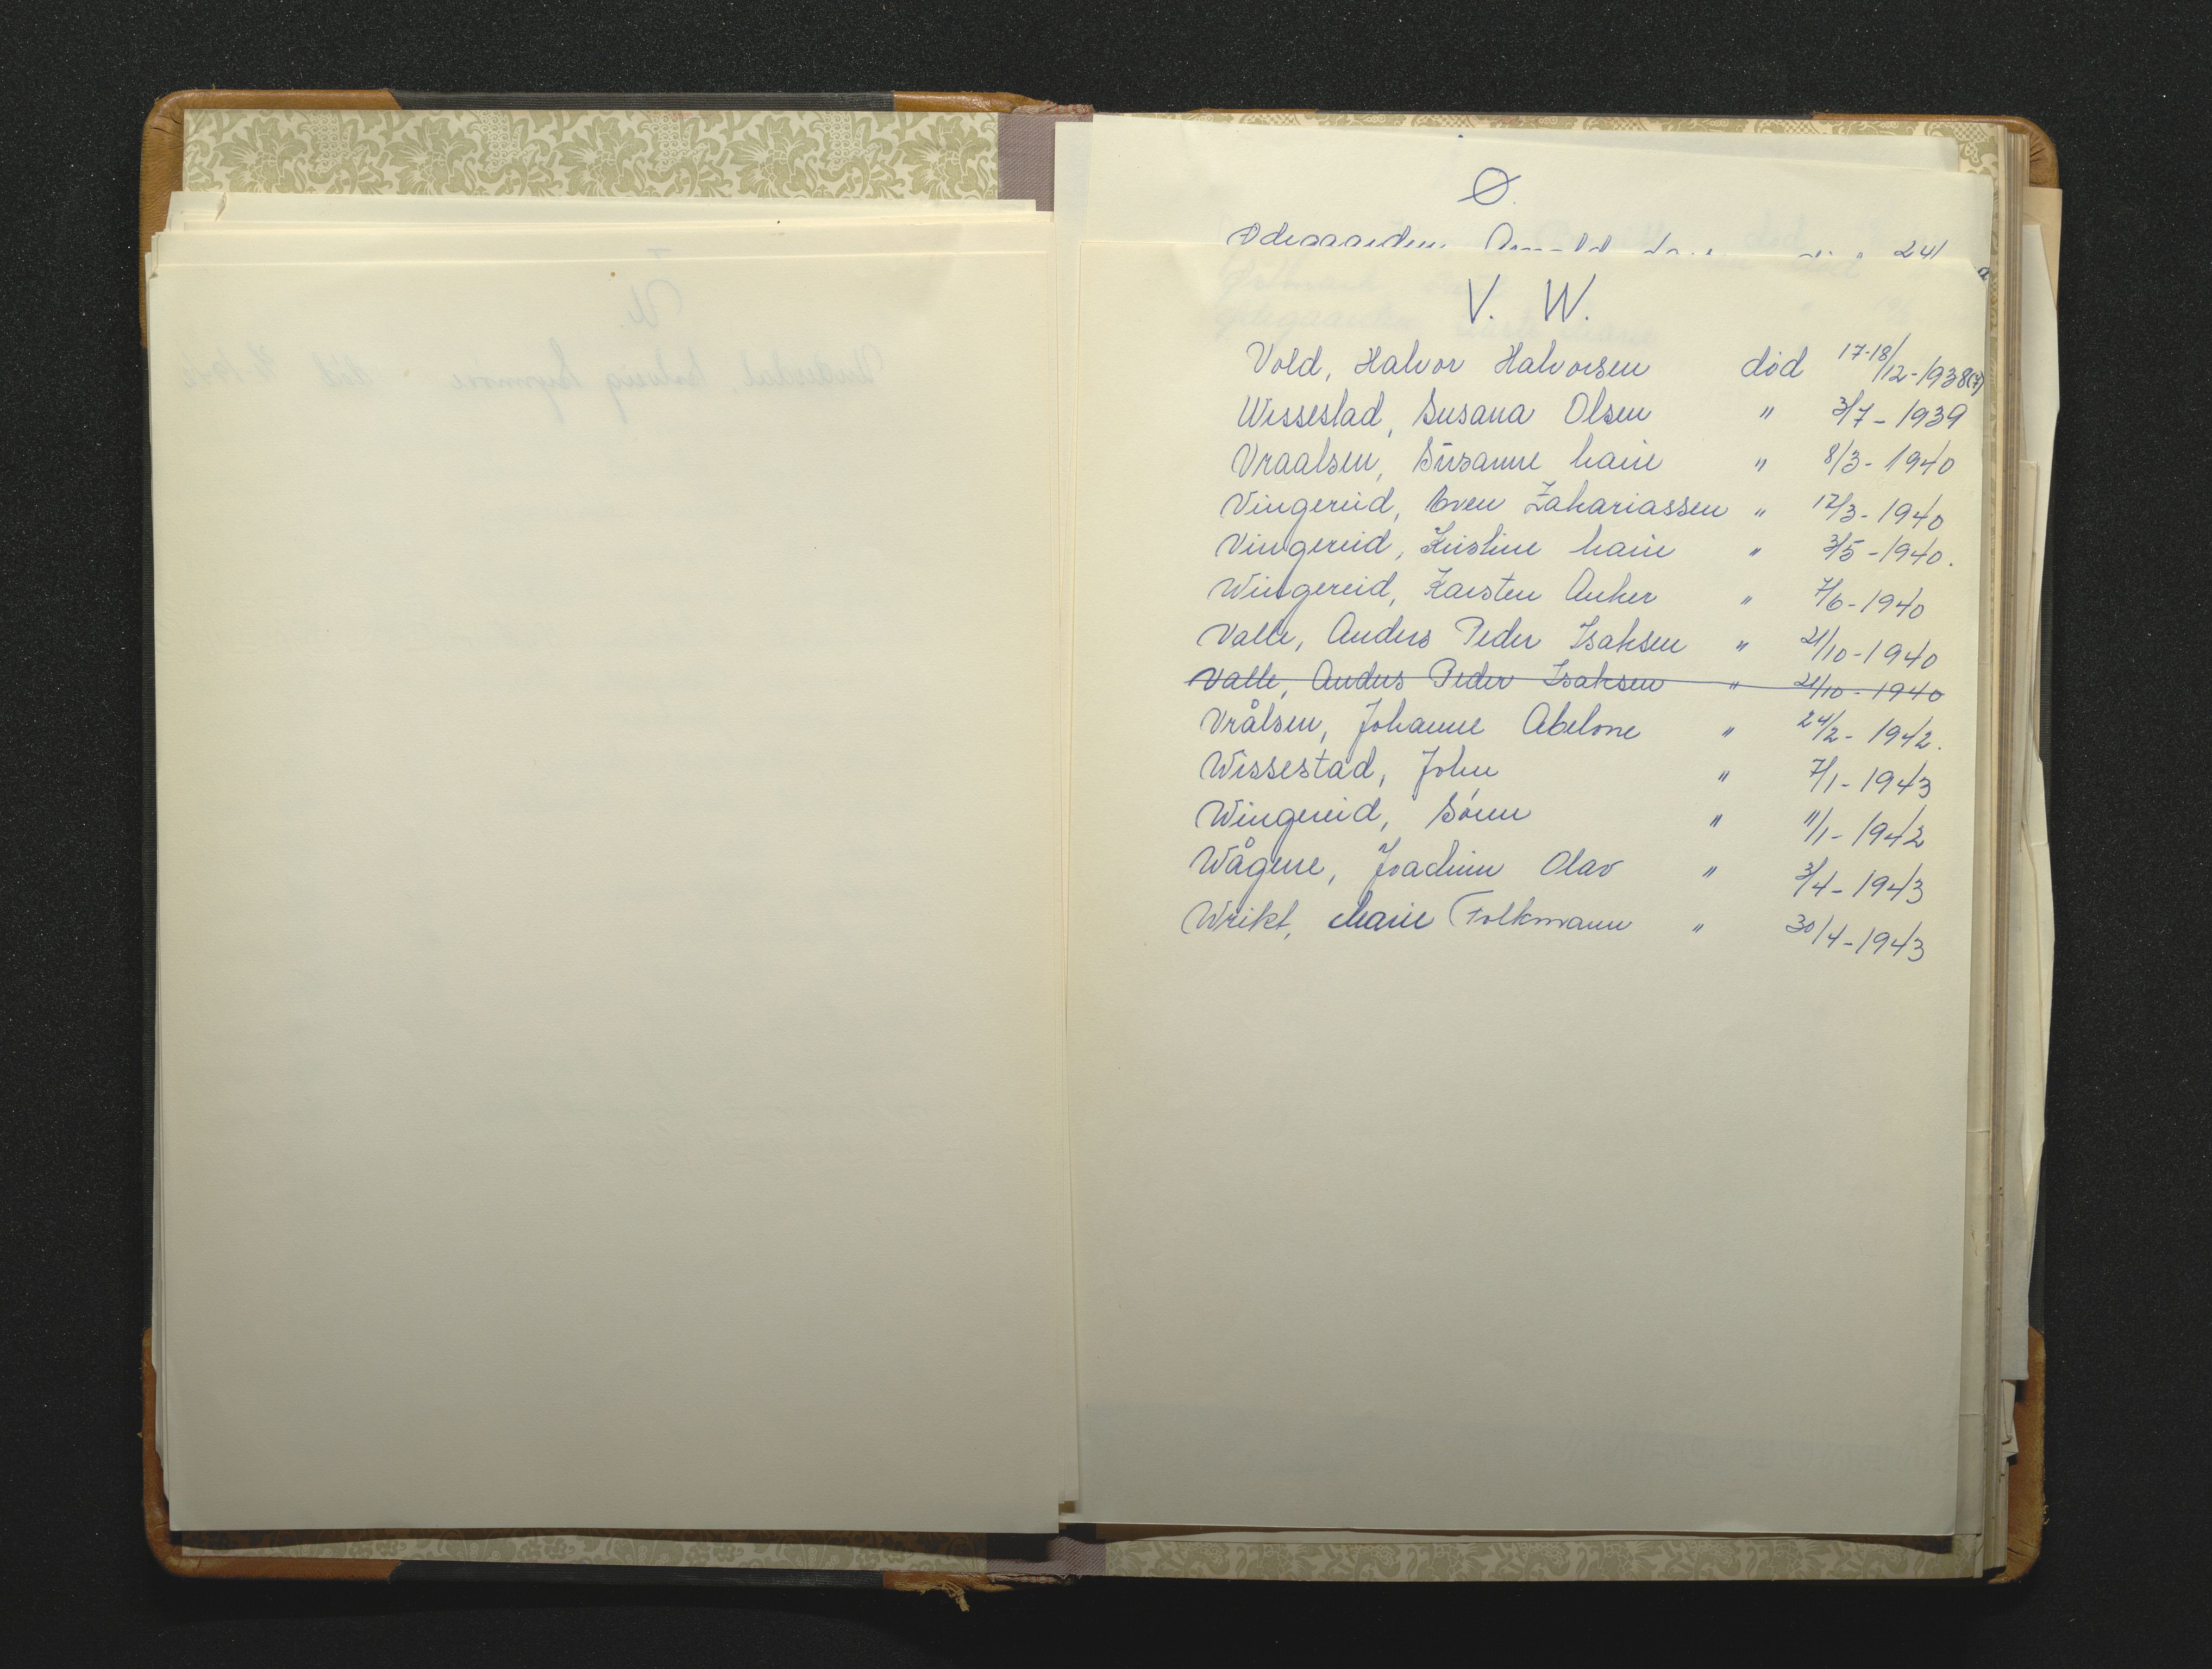 Ø.
V. W.
Vold, Halvor Halvorsen død 17-18/12-1938(7)
Wissestad, Susana Olsen " 3/7-1939
Vraalsen, Susanne Marie " 8/3-1940
Vingereid, Even Zakariassen " 12/3-1940
Vingereid, Kristine Marie " 3/5-1940.
Wingereid, Karsten Anker " 7/6-1940
Valle, Anders Peder Isaksen " 21/10-1940
Valle, Anders Peder Isaksen " 21/10-1940
Vrålsen, Johanne Abelone " 24/2-1942.
Wissestad, John " 7/1-1943
Wingereid, Sörin " 11/1-1942
Wågene, Joachim Olav " 3/4-1943
Wrikt, Marie Folkmann " 30/4-1943